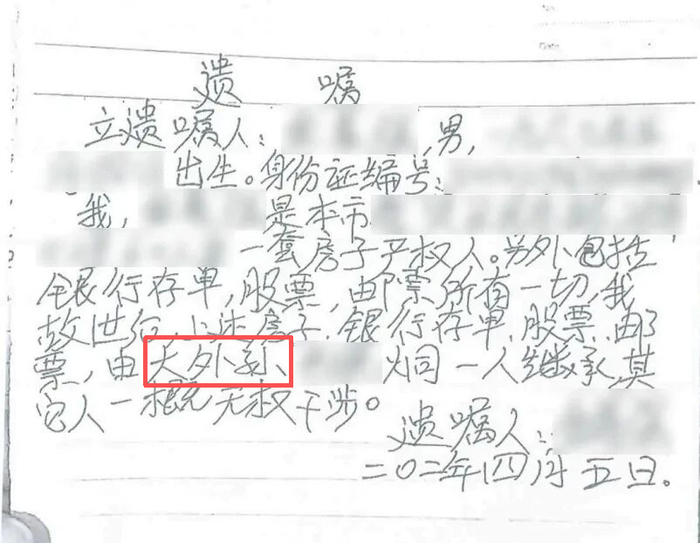 Date
遗 嘱
立遗嘱人: ,男,
出生。身份证编号:
我, 是本市
一套房子产权人。另外包括
银行存单,股票,邮票所有一切,我
故世后,上述房子.银行存单.股票.邮
票,由大外孙 烔一人继承,其
它人一概无权干涉。
遗嘱人:
二〇二年四月五日。